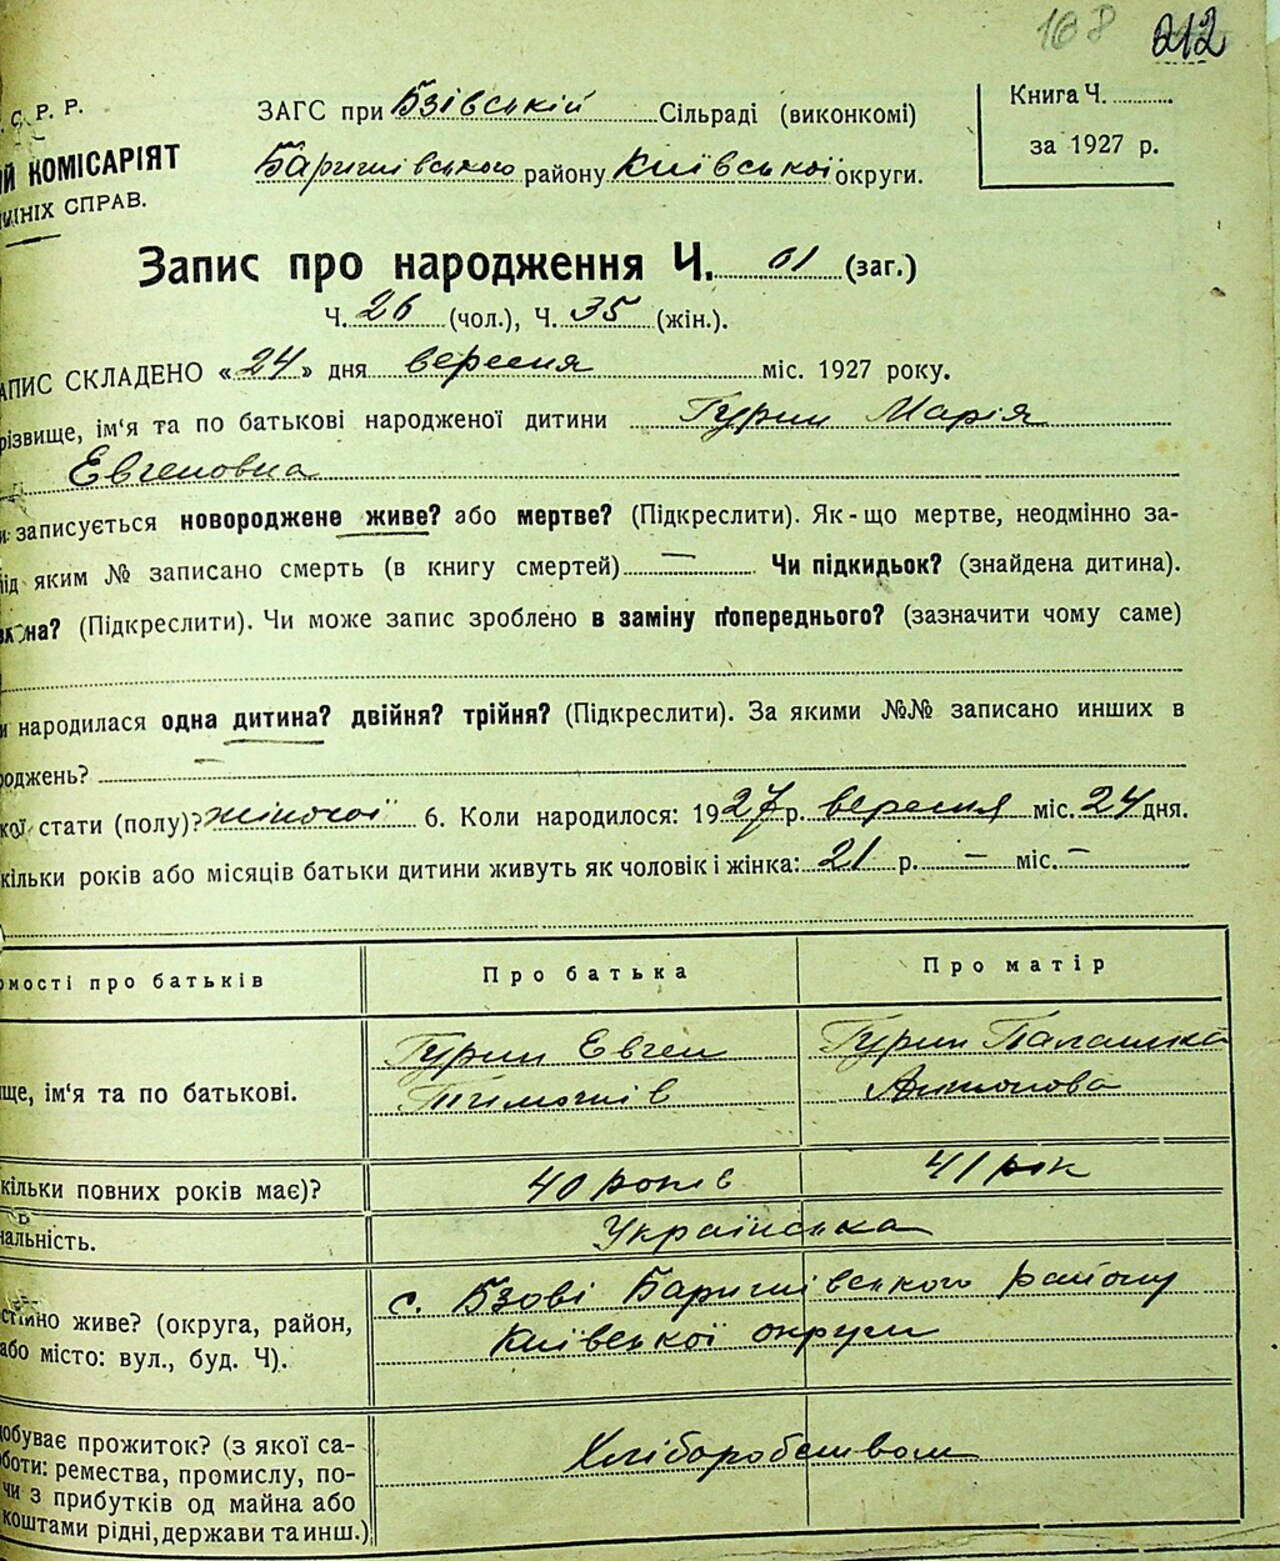 168 212
С. Р. Р.
ЗАГС при Бзівській Сільраді (виконкомі)
Книга Ч.
Й КОМІСАРІЯТ
Баришівського району Київської округи.
за 1927 р.
ШНІХ СПРАВ.
Запис про народження Ч. 61 (заг.)
Ч. 26 (чол.), Ч. 35 (жін.).
АПИС СКЛАДЕНО «24» дня вересня міс. 1927 року.
різвище, ім'я та по батькові народженої дитини Гурин Марія
Евгеновна
записується новороджене живе? або мертве? (Підкреслити). Як-що мертве, неодмінно за-
під яким № записано смерть (в книгу смертей) — Чи підкидьок? (знайдена дитина).
на? (Підкреслити). Чи може запис зроблено в заміну попереднього? (зазначити чому саме)
и народилася одна дитина? двійня? трійня? (Підкреслити). За якими №№ записано инших в
роджень? —
кої стати (полу)? жіночої 6. Коли народилося: 1927 р. вересня міс. 24 дня.
кільки років або місяців батьки дитини живуть як чоловік і жінка: 21 р. — міс. —
омості про батьків Про батька Про матір
Гурин Евген Гурин Палашка
ще, ім'я та по батькові. Тимошів Антонова
кільки повних років має)? 40 років 41 рік
нальність. Українська
с. Бзові Баришівського району
стійно живе? (округа, район, Київської округи
або місто: вул., буд. Ч).
добуває прожиток? (з якої са- Хліборобством
боти: ремества, промислу, по-
чи з прибутків од майна або
коштами рідні, держави та инш.)